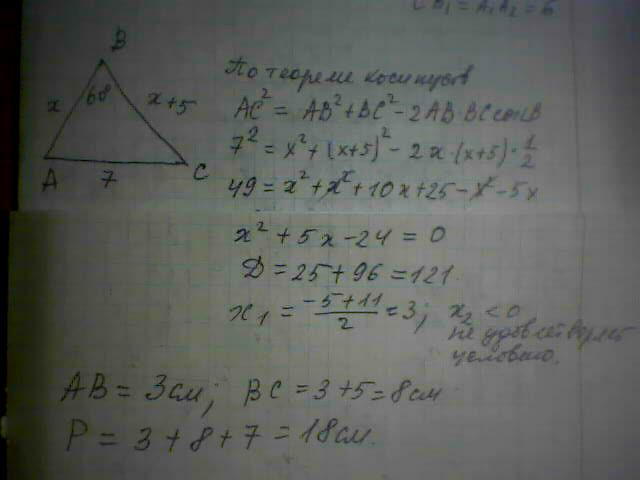 CB₁ = A₁A₂ = 6
B
x 60° x+5
A 7 C
По теореме косинусов
AC² = AB² + BC² - 2AB·BC cos∠B
7² = x² + (x+5)² - 2x·(x+5)·1/2
49 = x² + x² + 10x + 25 - x² - 5x
x² + 5x - 24 = 0
D = 25 + 96 = 121.
x₁ = (-5+11)/2 = 3; x₂ < 0
не удовлетворяет
условию.
AB = 3см; BC = 3+5 = 8см
P = 3 + 8 + 7 = 18см.